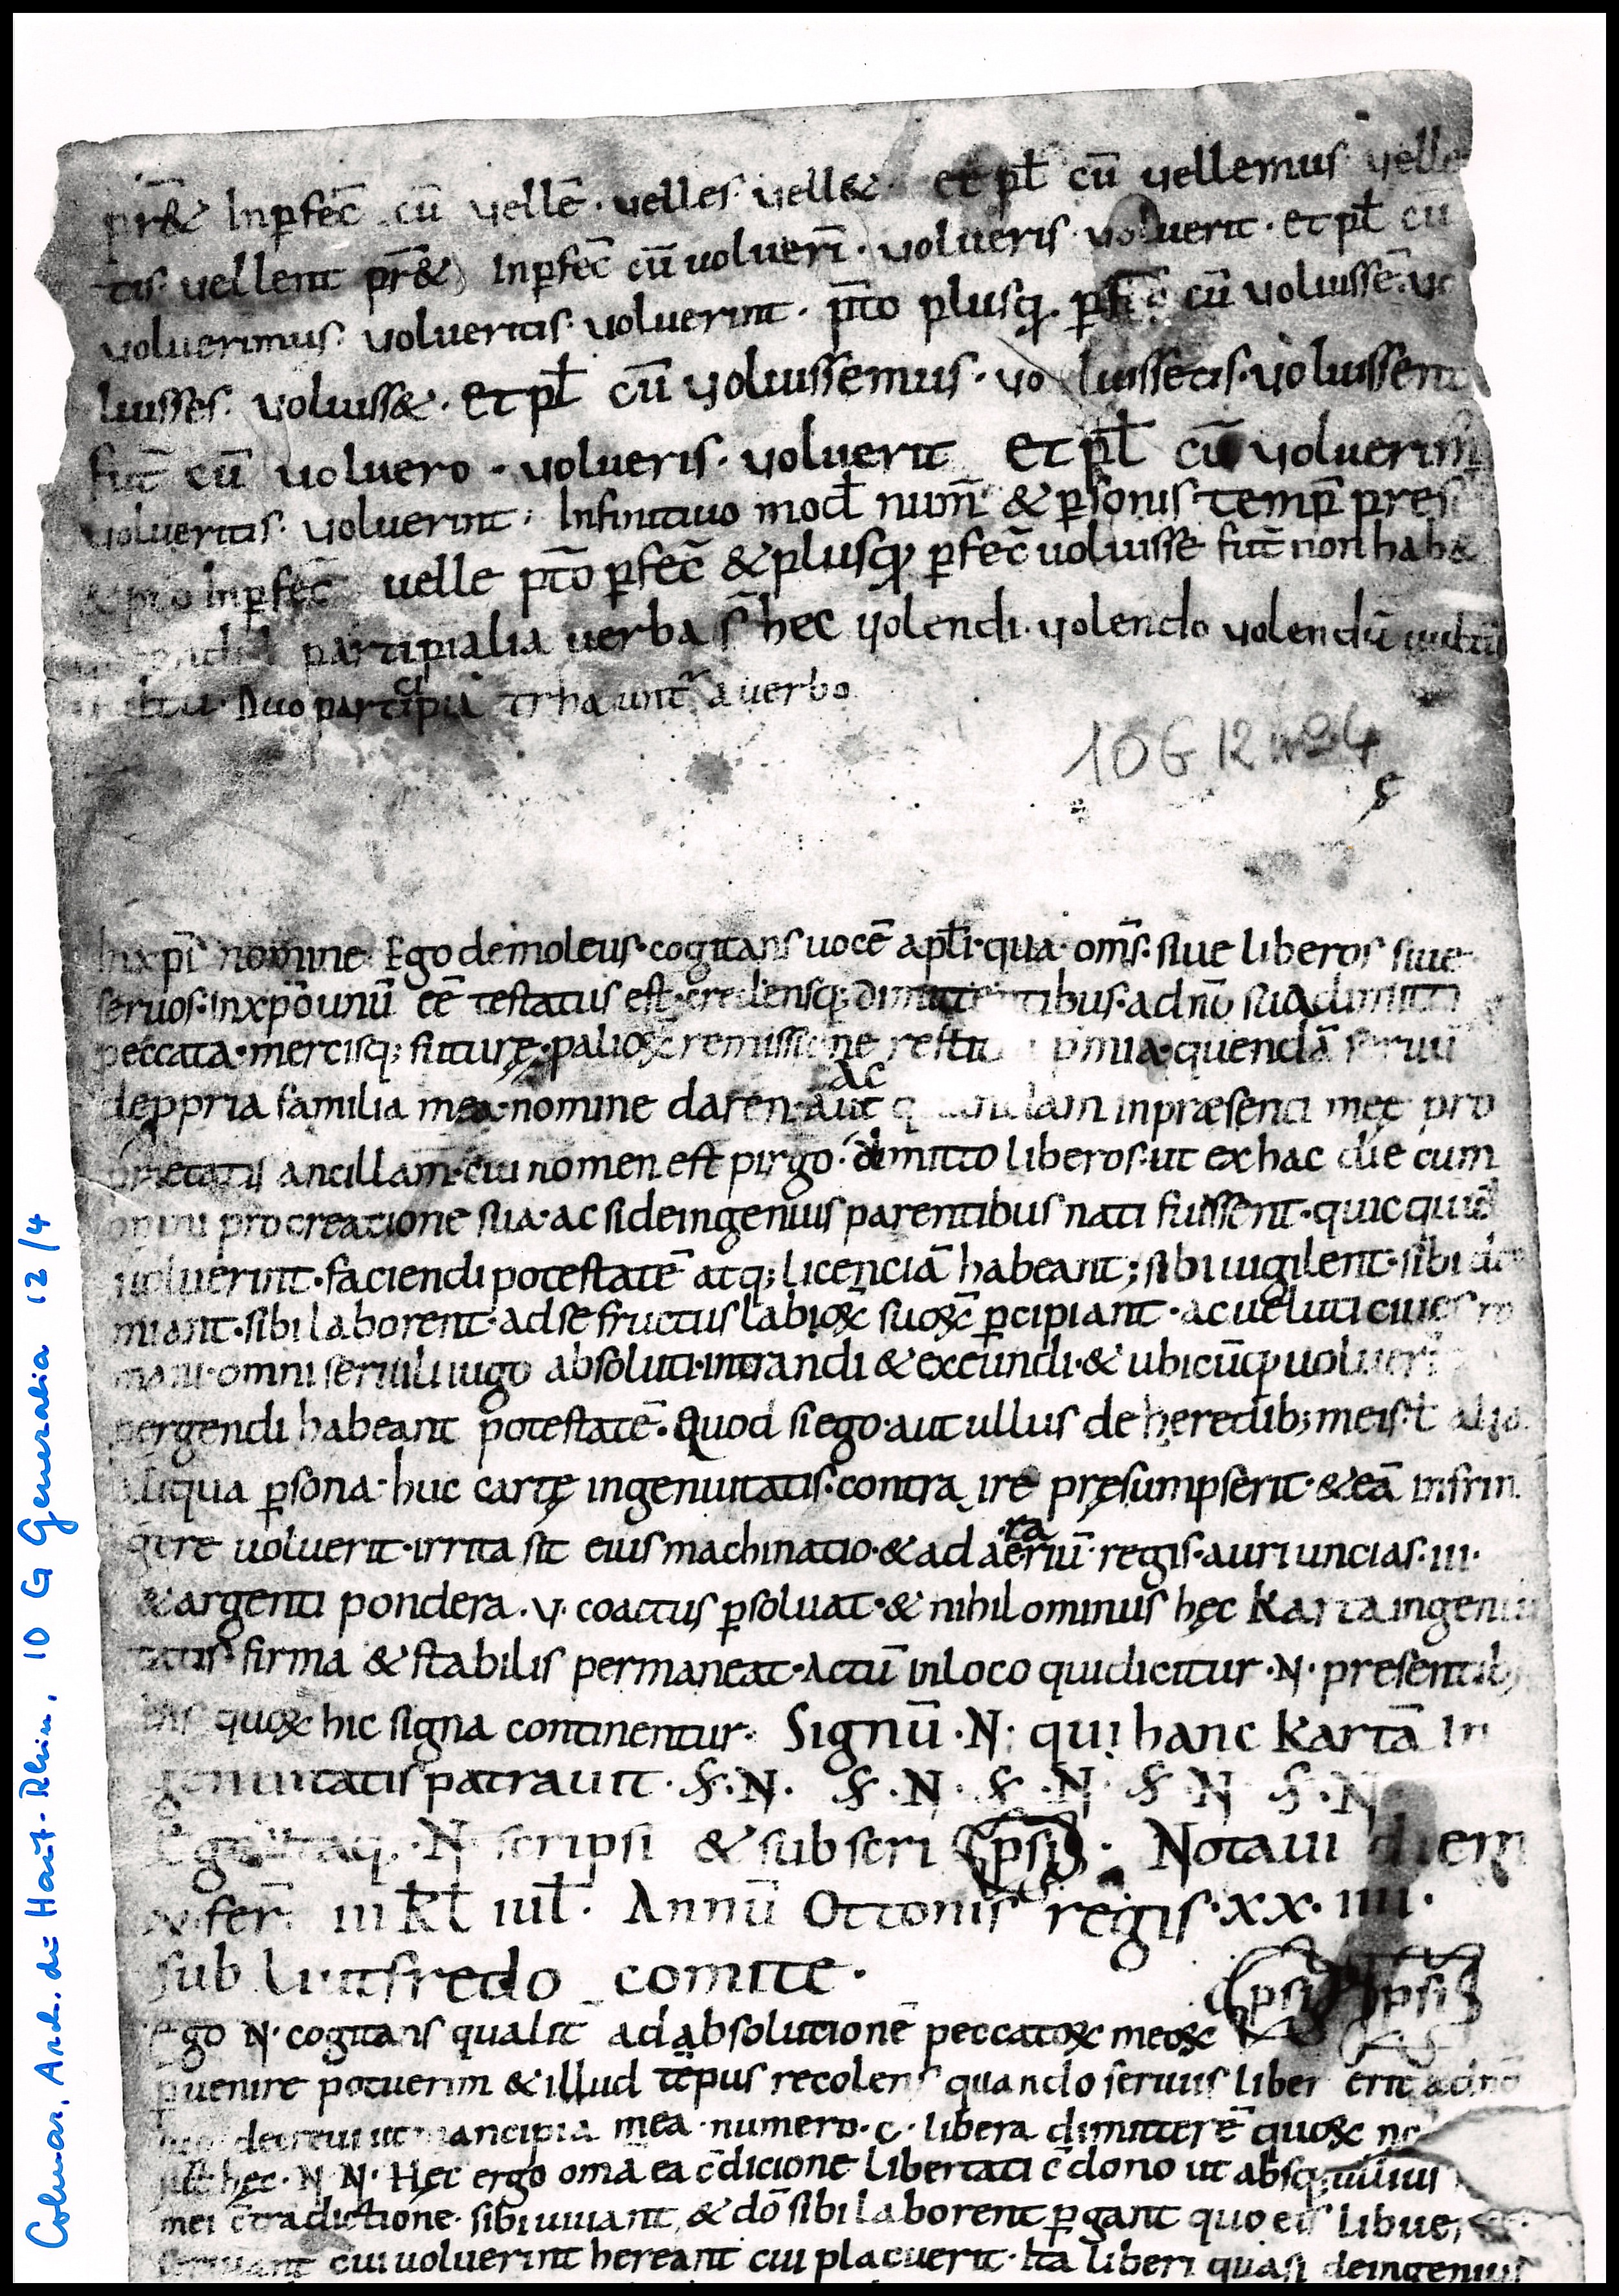 pr̄& Inꝑfec̄ cū vellē· velles· vell&· et pl̄ cū vellemus velle
tis· vellent pr̄& Inꝑfec̄ cū voluerī· volueris· voluerit· et pl̄ cū
voluerimus· volueritis· voluerint· pt̄o plusq· cū voluissē· vo
luisses· voluiss&· Et pl̄ cū voluissemus· vo luissetis· voluissent
fut̄ cū voluero· volueris· voluerit Et pl̄ cū voluerim
volueritis· voluerint· Infinitiuo mod̄ num̄ & ꝑsonis temp̄ pres
& p̄to Inꝑfec̄ uelle pt̄o ꝑfec̄ & plusꝙ ꝑfec̄ uoluisse fut̄ non hab&
partipialia uerba s̄ hec volendi· volendo volendū
Duo participia trhaunt᷑ a verbo
10 G 12 nº 4
In xp̄i nomine Ego demoleus· cogitans uocē apl̄i· qua· om̄s· siue liberos siue
seruos· In xp̄o unū eē testatus est· credensq; dimittentibus· a dn̄o sua dimitti
peccata· mercisq; future̜· palioꝝ remissione p̄mia· quendā seruū
de ꝓpria familia mea· nomine daren· aut ac inpræsenti meę pro
prietatis ancillam· cui nomen est pirgo· dimitto liberos· ut ex hac die cum
omni procreatione sua· ac si deingenuis parentibus nati fuissent· quicquid
uoluerint· faciendi potestatē atq; licenciā habeant; sibi uigilent· sibi dor
miant· sibi laborent· ad se fructus labioꝝ suoꝝ ꝑcipiant· ac ueluti ciues ro
mani· omni seruili iugo absoluti· intrandi & exeundi· & ubicūꝙ uoluerī
pergendi habeant potestatē· Quod si ego· aut ullus de heredib; meis· ł alia
aliqua ꝑsona· huc cartę ingenuitatis· contra ire pręsumpserit· & eā infrin
gere uoluerit· irrita sit eius machinatio· & ad aeriū ra regis· auri uncias· III·
& argenti pondera· V· coactus ꝑsoluat· & nihilominus hęc Karta ingenui
tatis firma & stabilis permaneat· Actū in loco qui dicitur· N· presentib;
his quoꝝ hic signa continentur· Signū· N· qui hanc Kartā In
genuitatis patrauit· S· N· S· N· S· N· S· N S· N
Ego itaq· N scripsi & subscri psi· Notaui diem
V· fer̄ III kl̄ iul̄· Annū Ottonis regis· XX· IIII·
sub liutfredo comite· psi psi
Ego N· cogitans qualit̄ ad absolutionē peccatoꝝ meoꝝ
ꝑuenire potuerim & illud tēpus recolens quando seruus liber erit a dn̄o
decreui ut mancipia mea· numero· C· libera dimitterē quoꝝ
hęc· N N· Hęc ergo om̄a ea c̄dicione libertati c̄dono ut absq; ullius
mei c̄tradictione· sibi uiuant, & dō sibi laborent ꝑgant quo eis libue
seruiant cui uoluerint hereant cui placuerit· Ita liberi quasi deingenuis
Colmar, Arch. du Haut-Rhin, 10 G Generalia 12/4